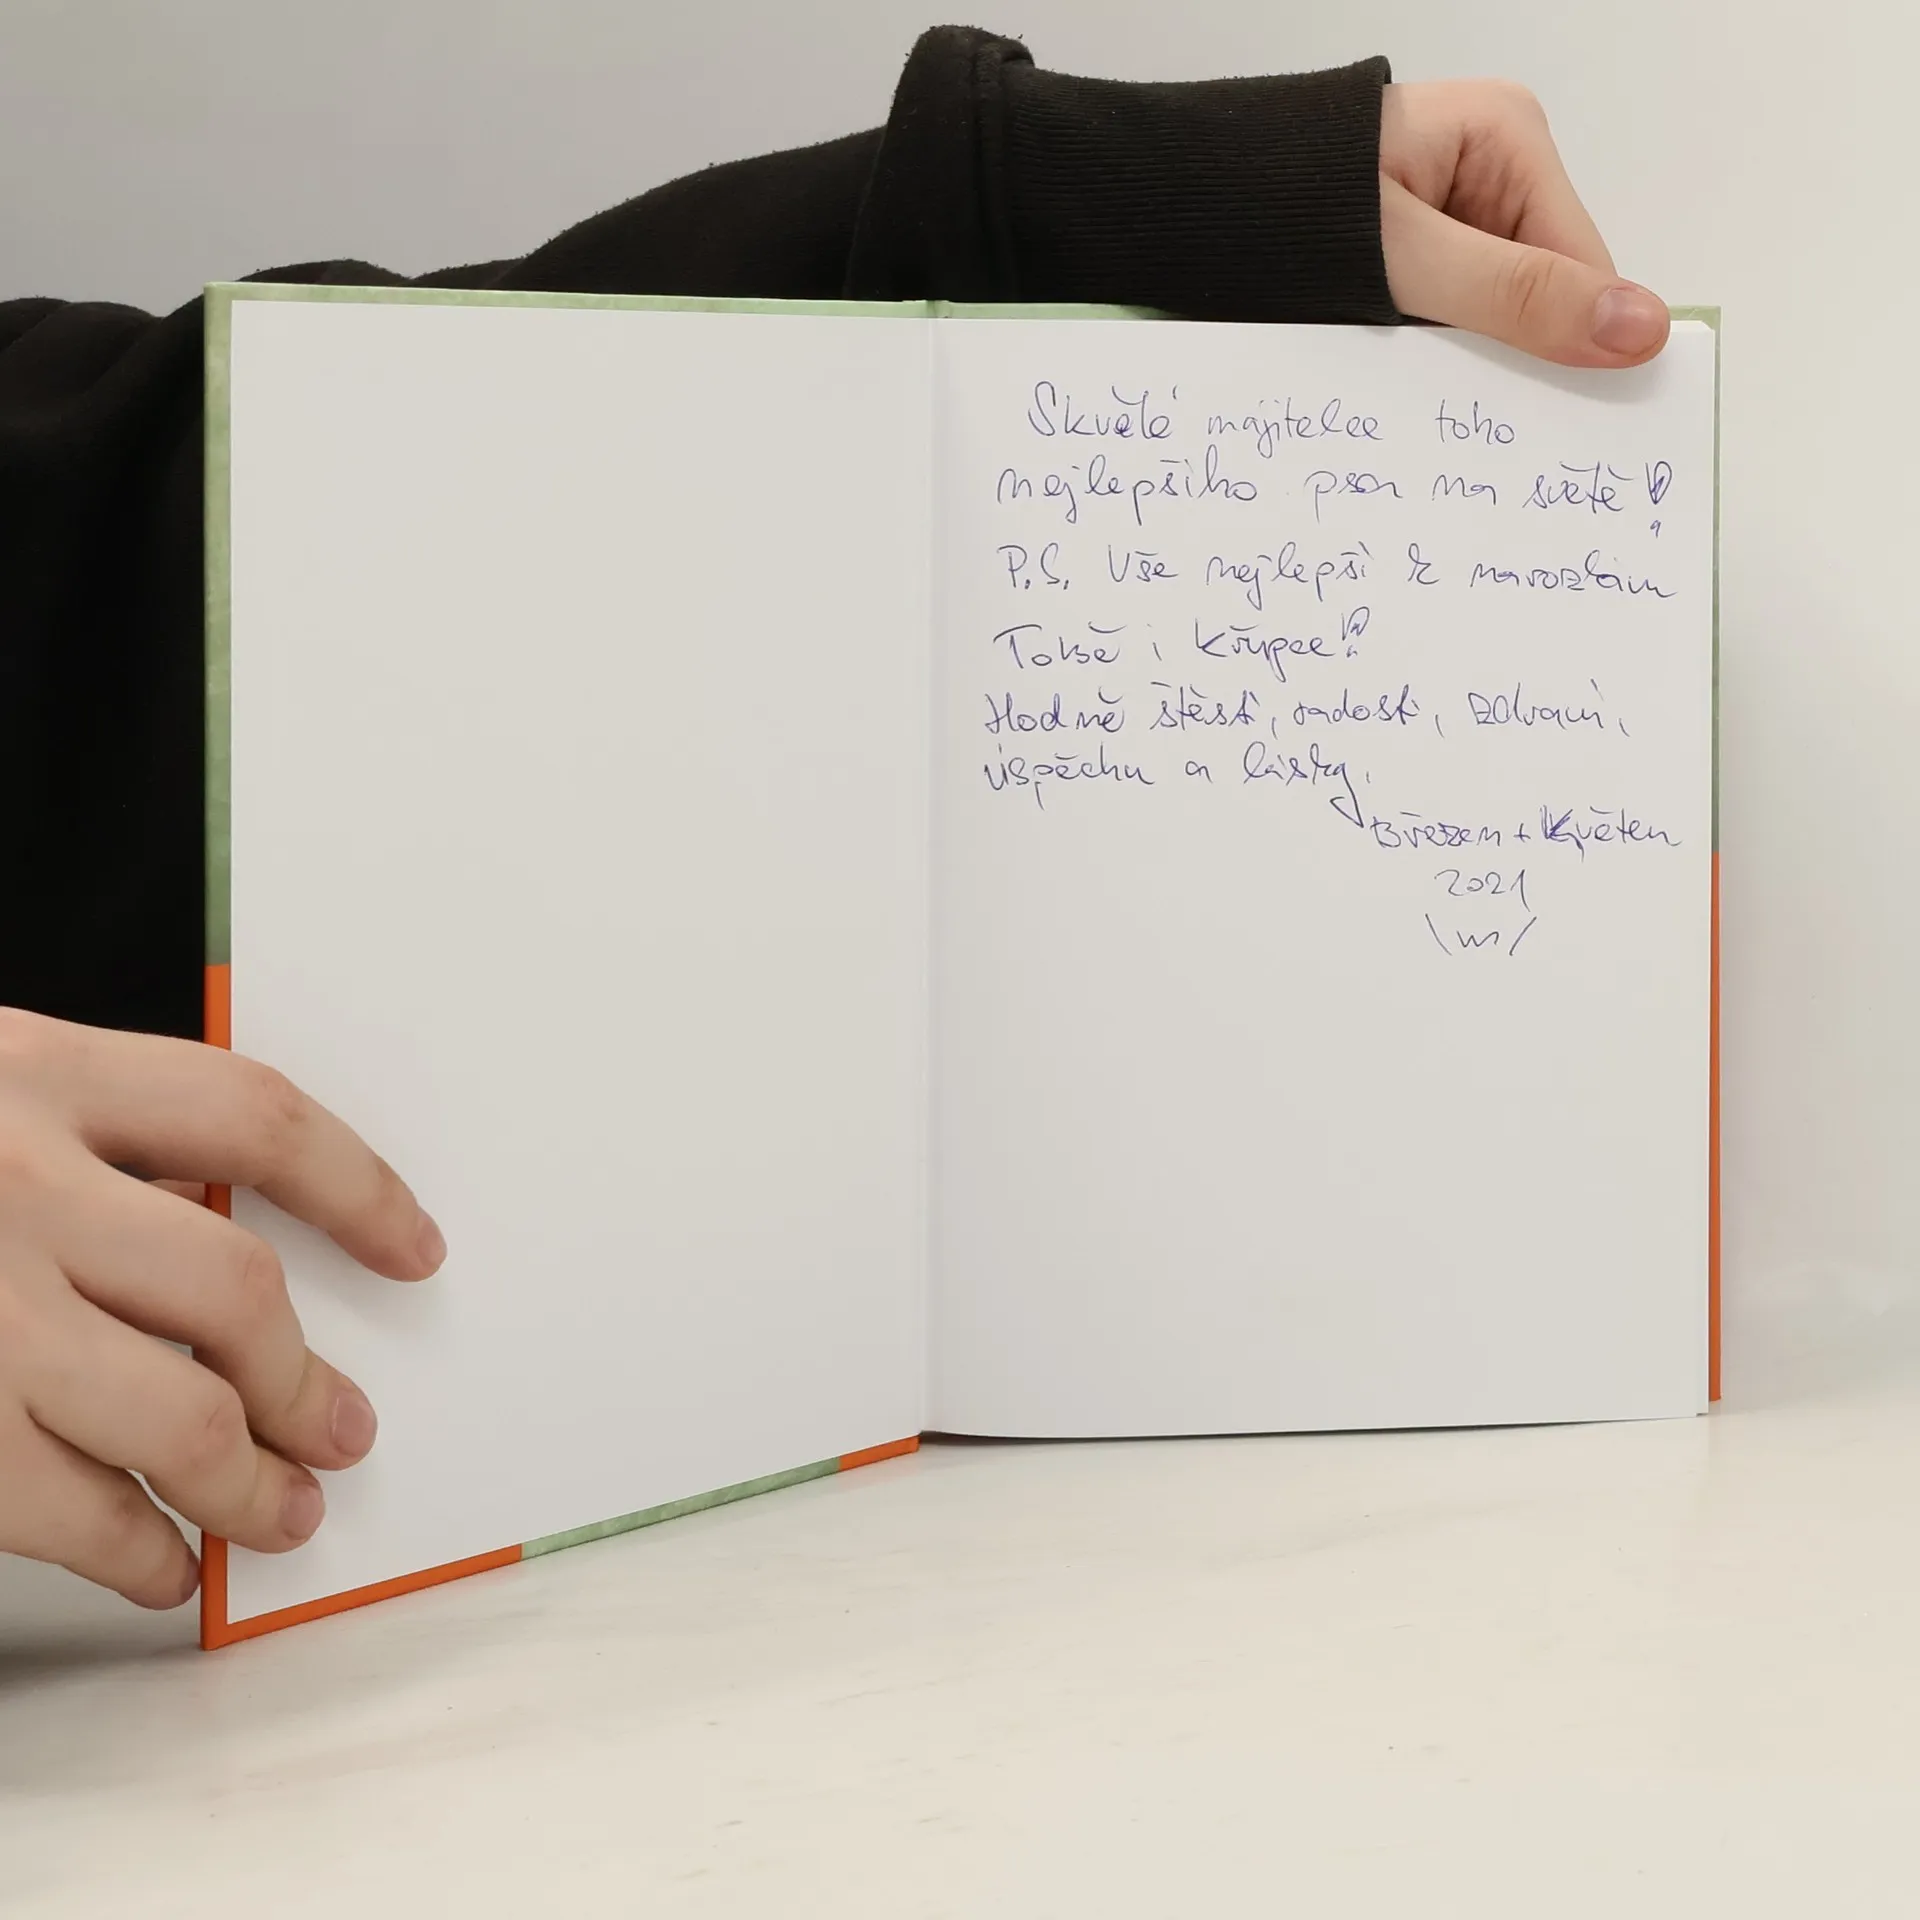 Skvělé majitelce toho
nejlepšího psa na světě!
P.S. Vše nejlepší k narozkám
Tobě i Křupce!
Hodně štěstí, radosti, zdraví,
úspěchu a lásky.
Březen + Květen
2021
\m/